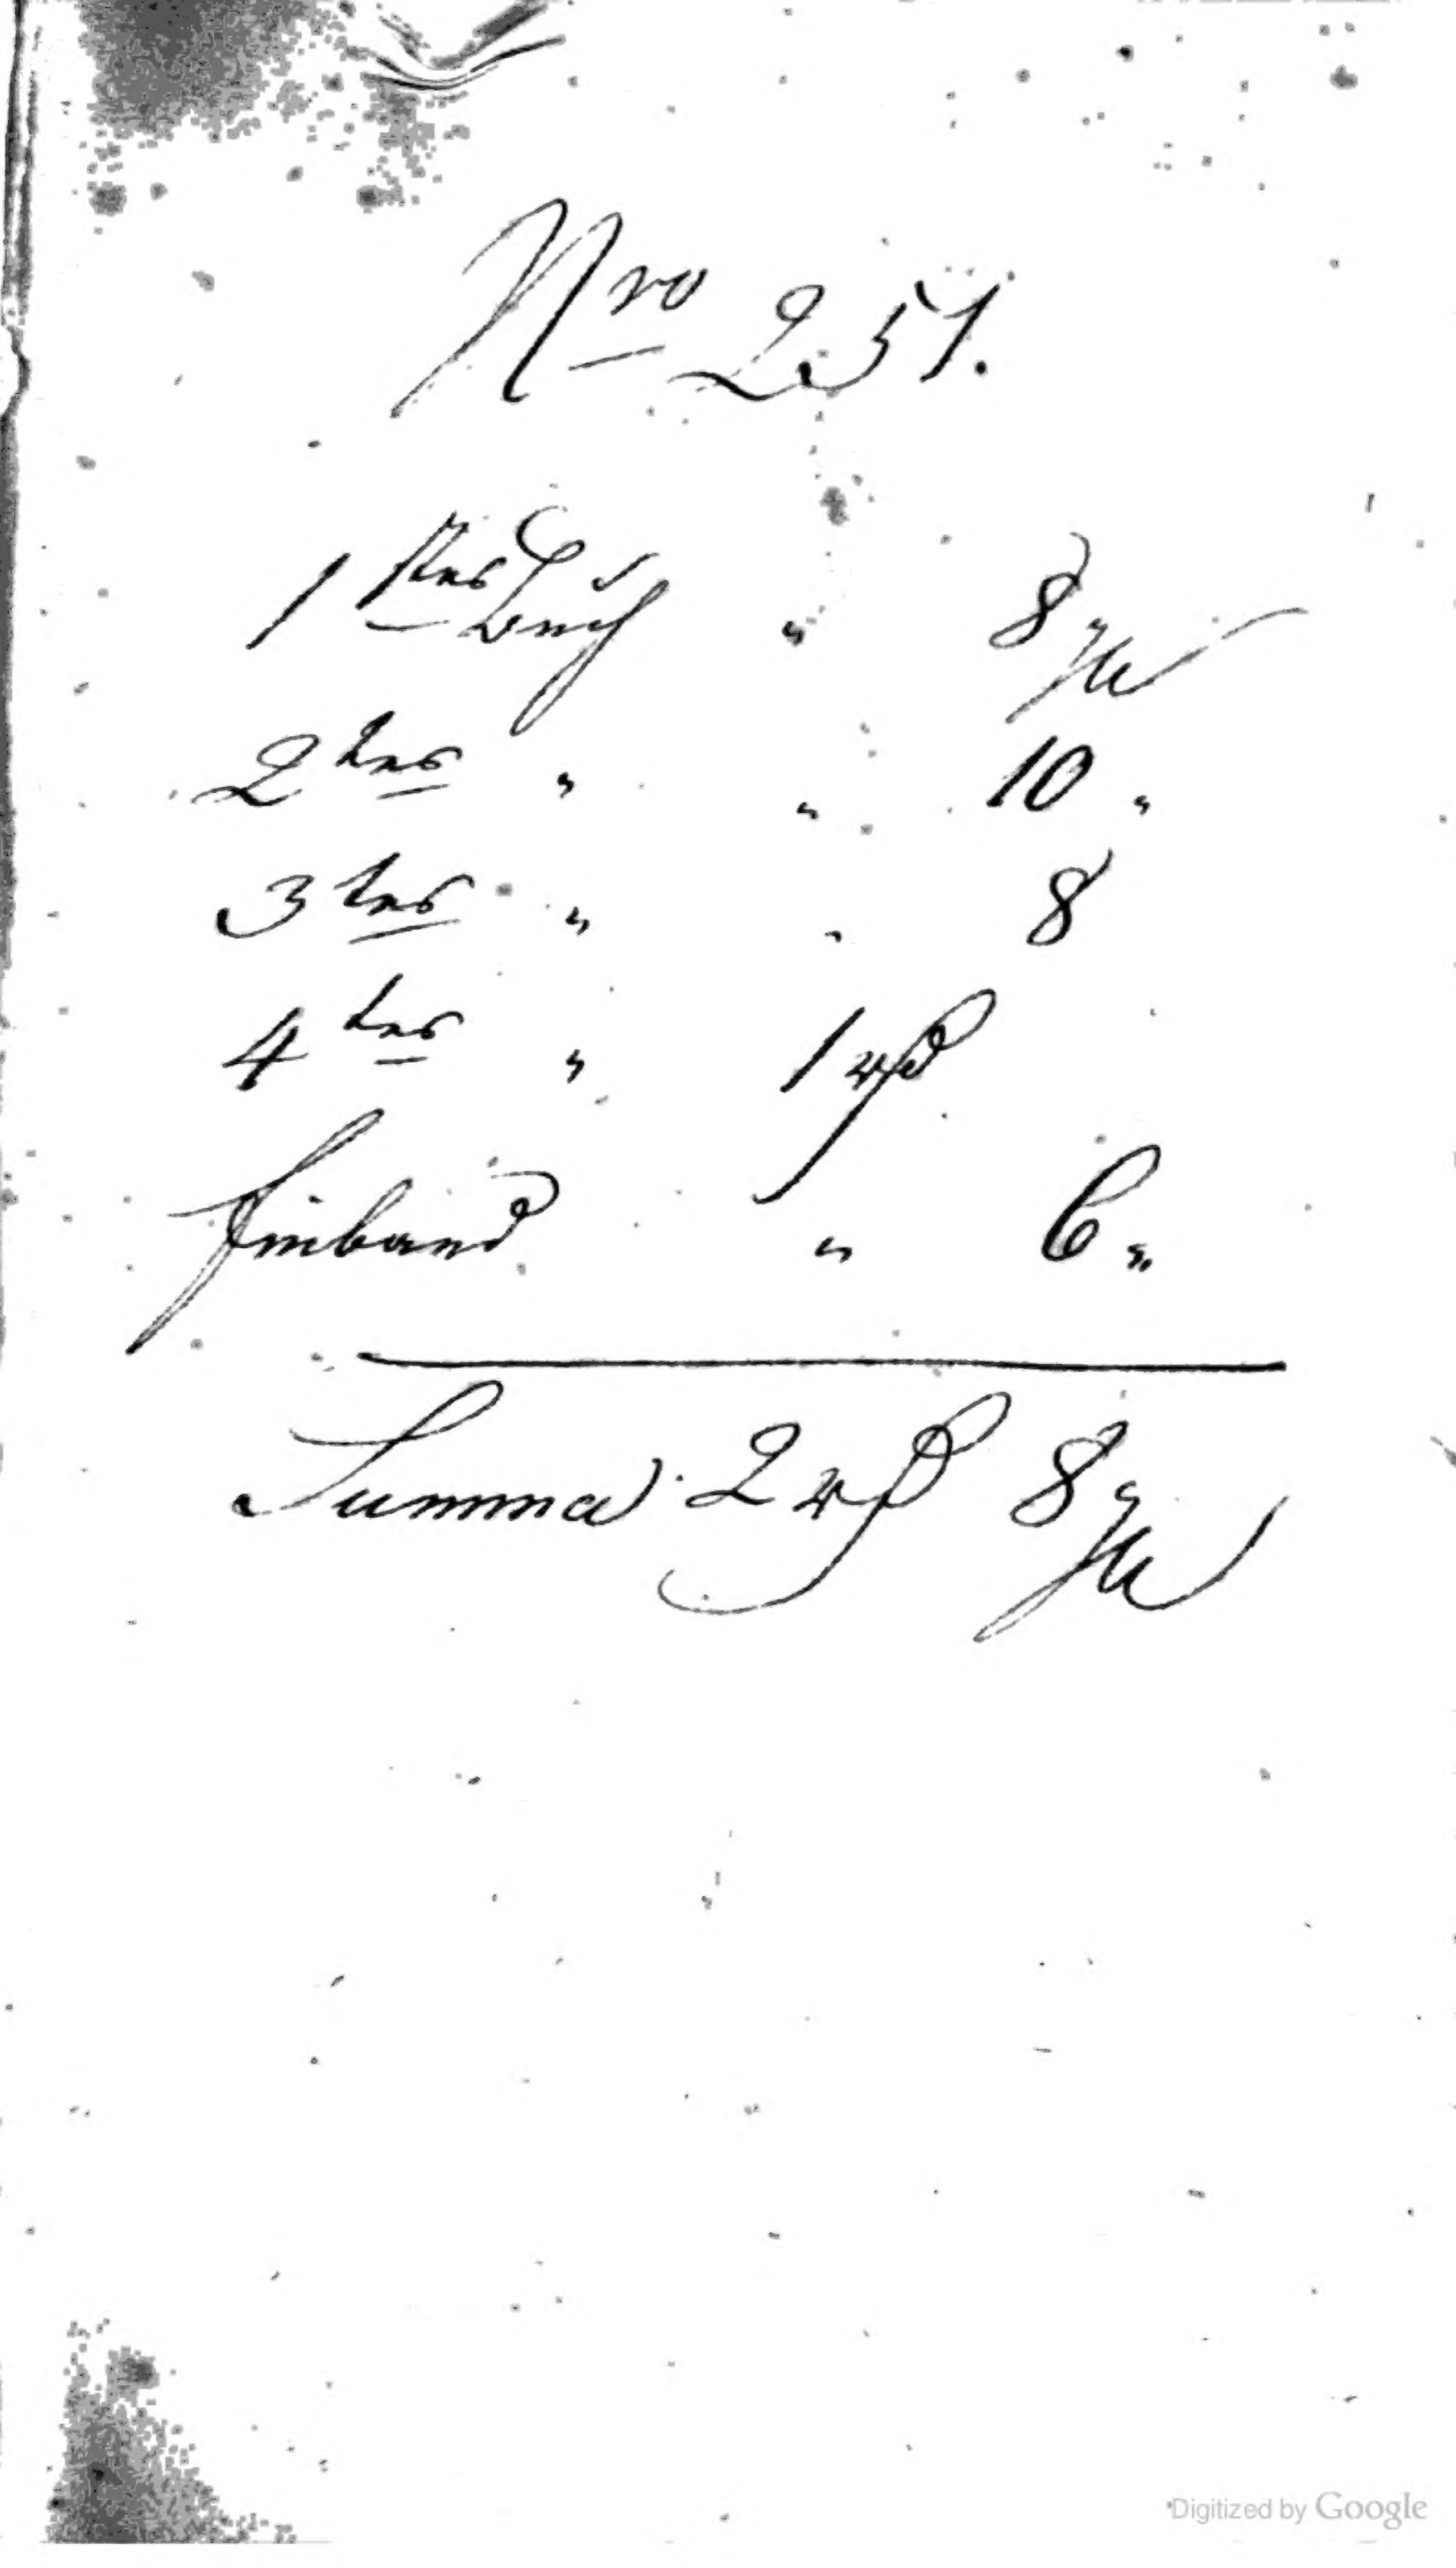 Nro 251.
1stes Buch " 8 gr
2tes " " 10 "
3tes " " 8
4tes " 1 rß
Einband " 6 "
Summa 2 rß 8 gr
Digitized by Google